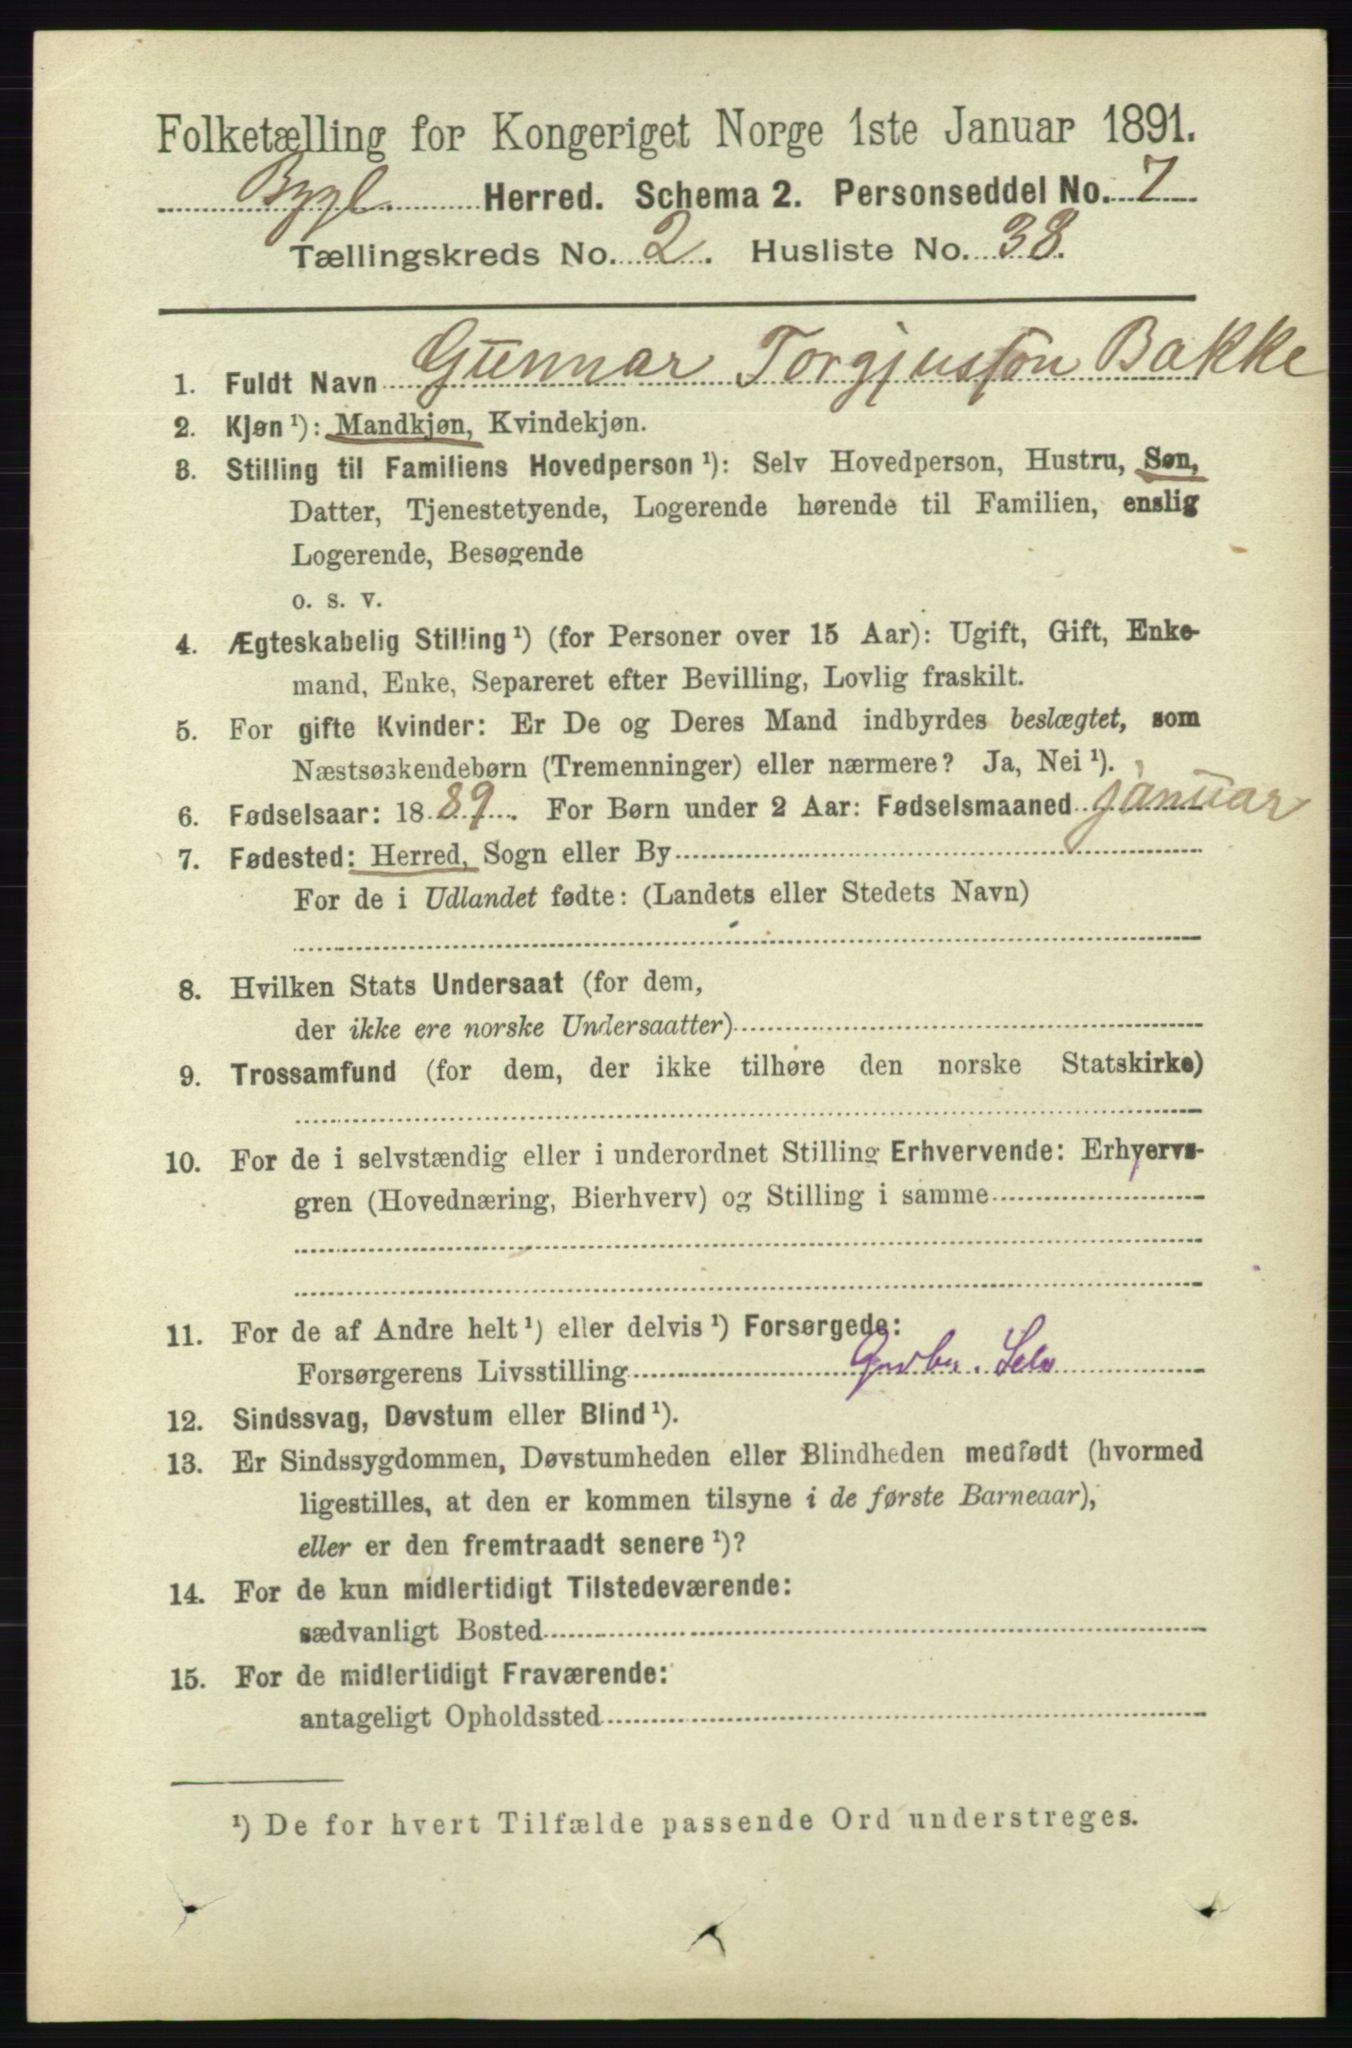 Folketælling for Kongeriget Norge 1ste Januar 1891.
Bygl. Herred. Schema 2. Personseddel No. 7
Tællingskreds No. 2. Husliste No. 38.
1. Fuldt Navn Gunnar Torgjusson Bakke
2. Kjøn ¹): Mandkjøn, Kvindekjøn.
3. Stilling til Familiens Hovedperson ¹): Selv Hovedperson, Hustru, Søn,
Datter, Tjenestetyende, Logerende hørende til Familien, enslig
Logerende, Besøgende
o. s. v.
4. Ægteskabelig Stilling ¹) (for Personer over 15 Aar): Ugift, Gift, Enke-
mand, Enke, Separeret efter Bevilling, Lovlig fraskilt.
5. For gifte Kvinder: Er De og Deres Mand indbyrdes beslægtet, som
Næstsøskendebørn (Tremenninger) eller nærmere? Ja, Nei ¹).
6. Fødselsaar: 1889. For Børn under 2 Aar: Fødselsmaaned januar
7. Fødested: Herred, Sogn eller By
For de i Udlandet fødte: (Landets eller Stedets Navn)
8. Hvilken Stats Undersaat (for dem,
der ikke ere norske Undersaatter)
9. Trossamfund (for dem, der ikke tilhøre den norske Statskirke)
10. For de i selvstændig eller i underordnet Stilling Erhvervende: Erhvervs-
gren (Hovednæring, Bierhverv) og Stilling i samme
11. For de af Andre helt ¹) eller delvis ¹) Forsørgede:
Forsørgerens Livsstilling Grdbr. Selv
12. Sindssvag, Døvstum eller Blind ¹).
13. Er Sindssygdommen, Døvstumheden eller Blindheden medfødt (hvormed
ligestilles, at den er kommen tilsyne i de første Barneaar),
eller er den fremtraadt senere ¹)?
14. For de kun midlertidigt Tilstedeværende:
sædvanligt Bosted
15. For de midlertidigt Fraværende:
antageligt Opholdssted
¹) De for hvert Tilfælde passende Ord understreges.